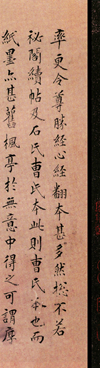 率更令尊勝經心經翻本甚多然摠不若
祕閣續帖及石氏曹氏本此則曹氏本也而
紙墨亦甚舊楓亭於無意中得之可謂厚